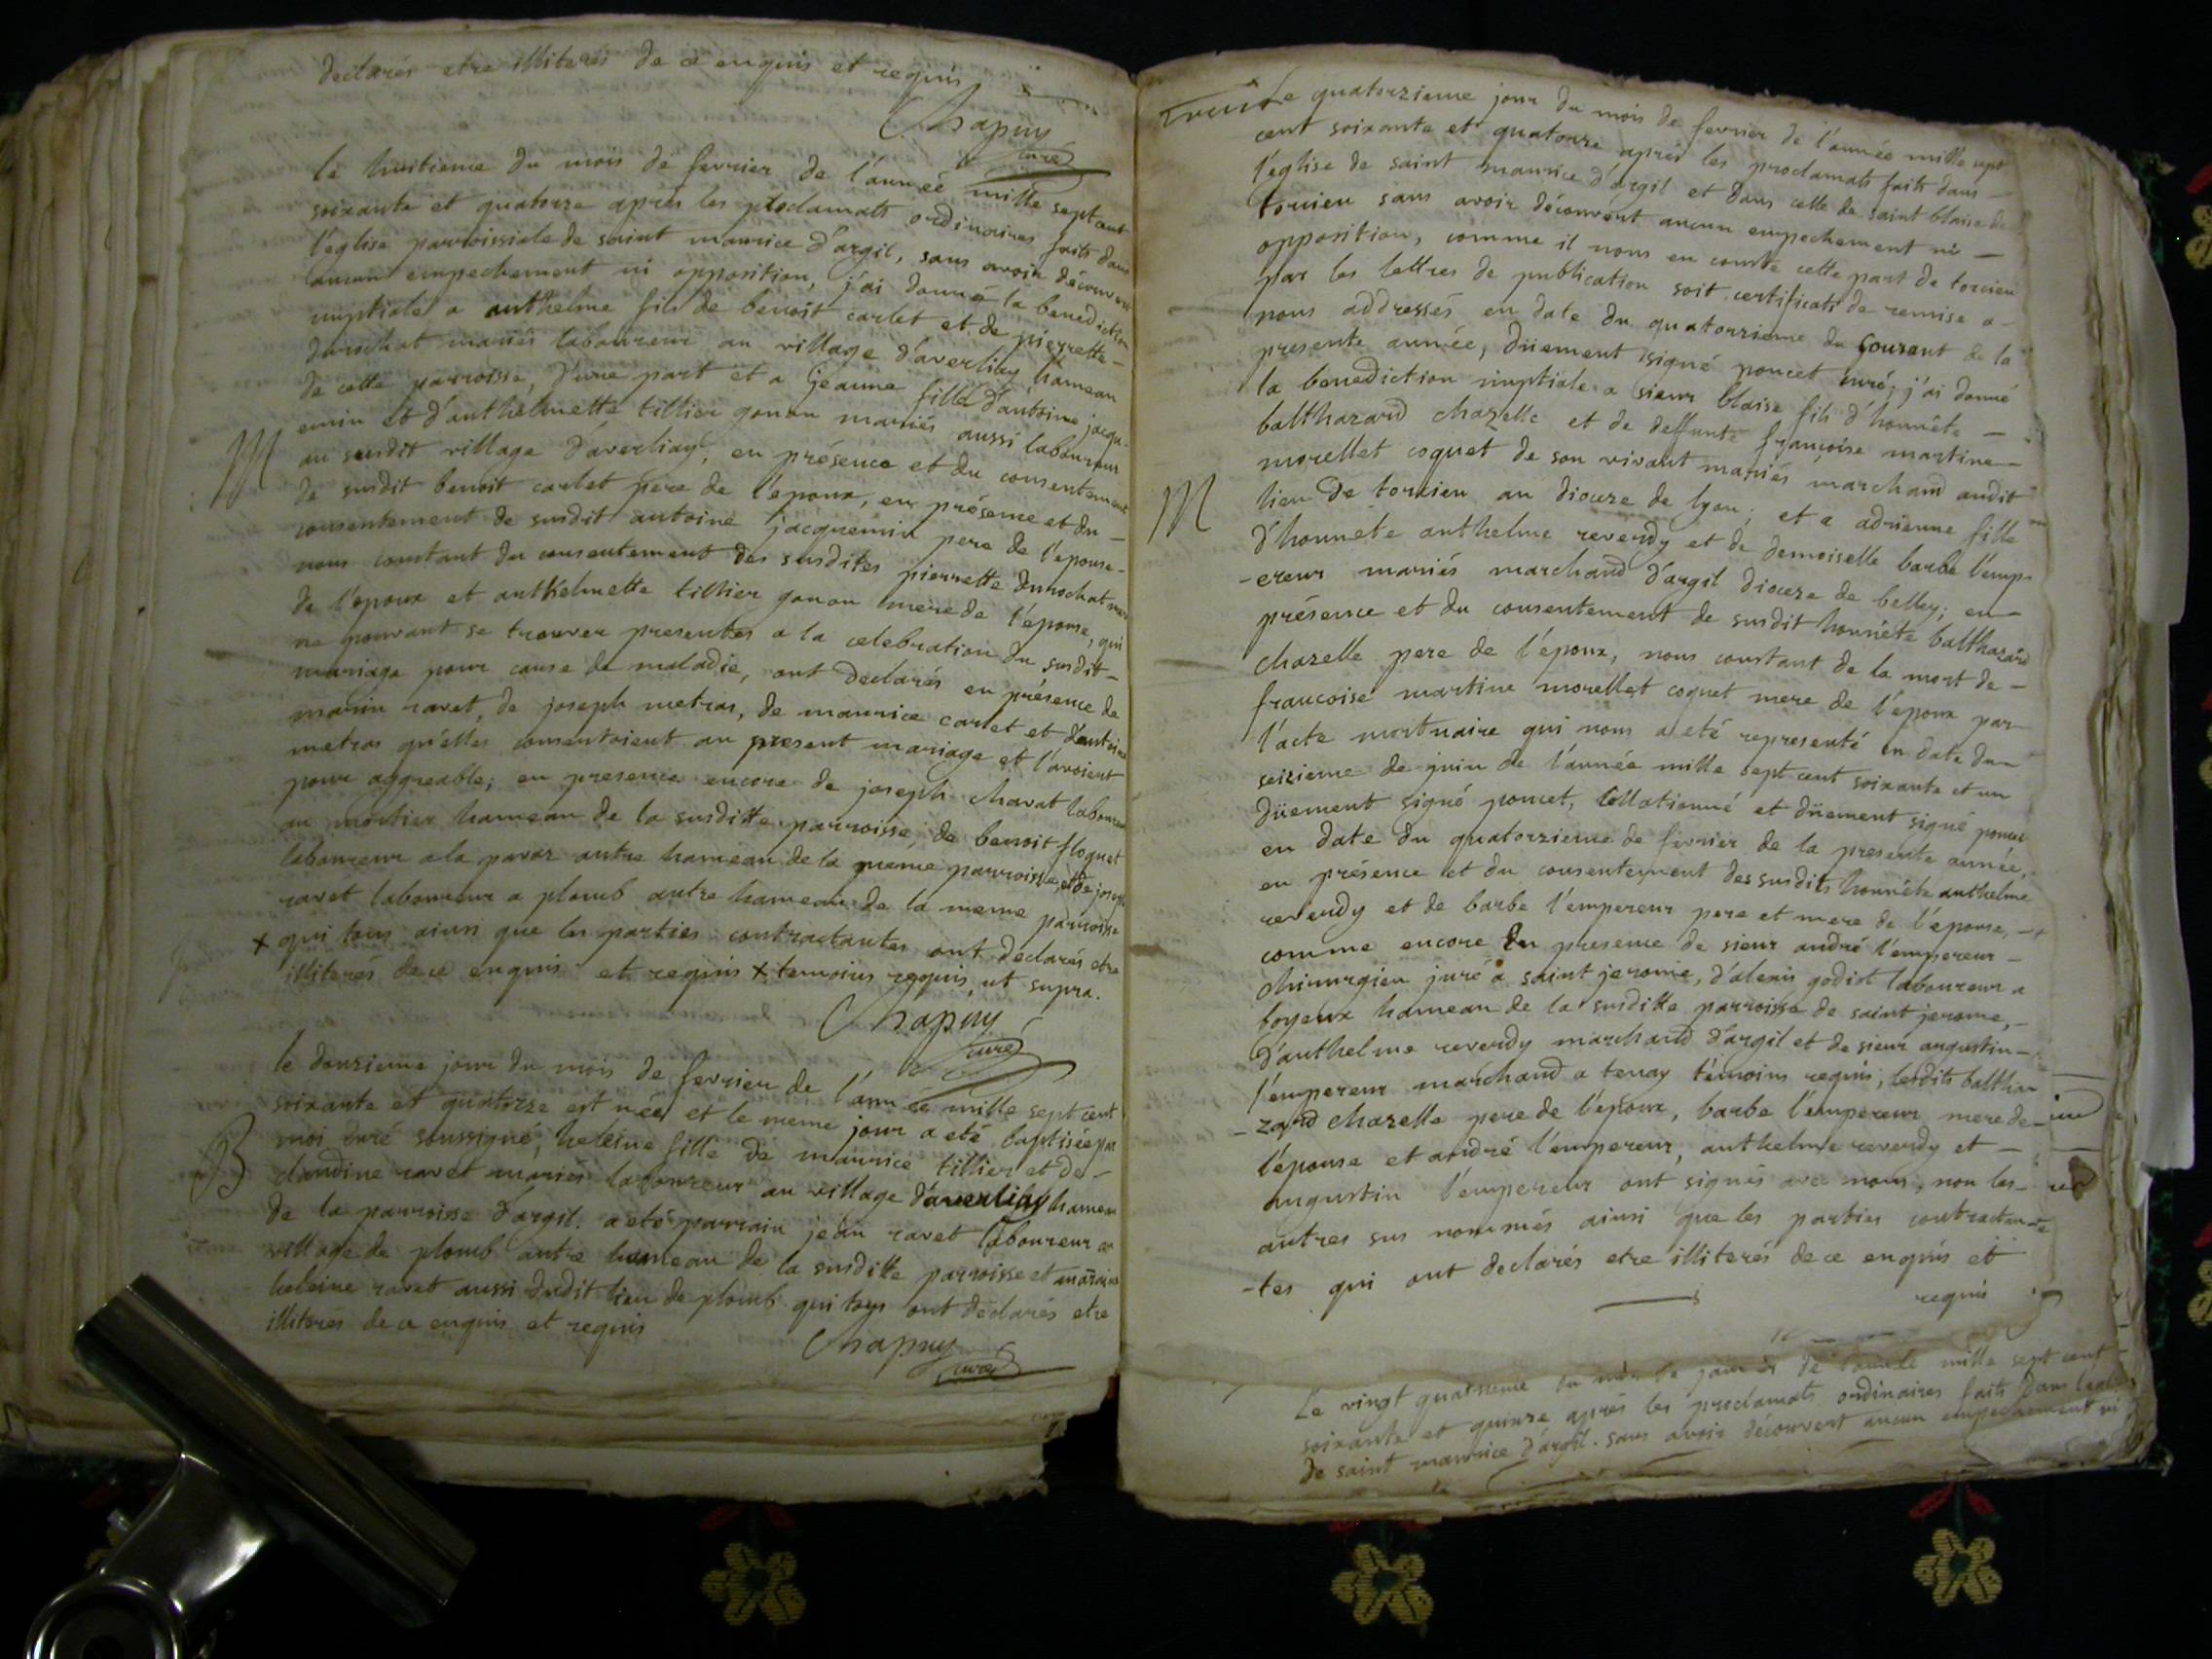 declarés etre illiterés de ce enquis et requis
Chapuy
curé
le huitieme du mois de fevrier de l'année mille sept cent
soixante et quatorze après les proclamats ordinaires faits dans
l'eglise parroissiale de saint maurice d'argil, sans avoir découvert
aucun empechement ni opposition, j'ai donné la benediction
nuptiale a anthelme fils de benoit carlet et de pierrette
durochat mariés laboureur au village d'averliay hameau
de cette parroisse, d'une part et a jeanne fille d'antoine jacqu-
emin et d'anthelmette tillier gonon mariés aussi laboureur
M
au susdit village d'averliay, en présence et du consentement
de susdit benoit carlet pere de l'epoux, en présence et du -
consentement de susdit antoine jacquemin pere de l'epouse-
nous constant du consentement des susdites pierrette durochat mere
de l'epoux et anthelmette tillier gonon mere de l'épouse, qui
ne pouvant se trouver presentes a la celebration du susdit-
mariage pour cause de maladie, ont declarés en présence de
marin ravet, de joseph metras, de maurice carlet et d'antoine
metras qu'elles consentoient au present mariage et l'avoient
pour aggreable; en presence encore de joseph charat laboureur
au mortier hameau de la susditte parroisse, de benoit floquet
laboureur a la paraz autre hameau de la meme parroisse, et de joseph
ravet laboureur a plomb autre hameau de la meme parroisse
x qui tous ainsi que les parties contractantes ont declarés etre
illiterés de ce enquis et requis x temoins requis, ut supra.
Chapuy
curé
le douzieme jour du mois de fevrier de l'année mille sept cent
soixante et quatorze est née et le meme jour a eté baptisée par
moi curé soussigné, heleine fille de maurice tillier et de -
B
claudine ravet mariés laboureur au village d'averliay hameau
de la parroisse d'argil. a eté parrain jean ravet laboureur au
village de plomb autre hameau de la susditte parroisse et marraine
heleine ravet aussi dudit lieu de plomb qui tous ont declarés etre
illiterés de ce enquis et requis
Chapuy
curé
Le quatorzieme jour du mois de fevrier de l'année mille sept
cent soixante et quatorze après les proclamats faits dans -
l'eglise de saint maurice d'argil et dans celle de saint blaise de
torcieu sans avoir découvert aucun empechement ni -
opposition, comme il nous en conste cette part de torcieu
par les lettres de publication soit certificats de remise a
nous addressés en date du quatorzieme du courant de la
presente année, düement signé poncet curé; j'ai donné
la benediction nuptiale a sieur blaise fils d'honnête -
balthazard chazelle et de deffunte françoise martine
morellet coquet de son vivant mariés marchand audit
M
lieu de torcieu au dioceze de lyon; et a adrienne fille
d'honnete anthelme reverdy et de demoiselle barbe l'emp-
-ereur mariés marchand d'argil dioceze de belley; en
présence et du consentement de susdit honnête balthazard
chazelle pere de l'époux, nous constant de la mort de -
francoise martine morellet coquet mere de l'époux par
l'acte mortuaire qui nous a eté representé en date du
seizieme de juin de l'année mille sept cent soixante et un
düement signé poncet, collationné et düement signé poncet
en date du quatorzieme de fevrier de la presente année,
en présence et du consentement des susdits honnête anthelme
reverdy et de barbe l'empereur pere et mere de l'épouse,
comme encore en presence de sieur andré l'empereur -
chirurgien juré a saint jerome, d'alexis godiot laboureur a
foyeux hameau de la susditte parroisse de saint jerome,
d'anthelme reverdy marchand d'argil et de sieur augustin
l'empereur marchand a tenay témoins requis, lesdits baltha
-zard chazelle pere de l'époux, barbe l'empereur mere de
l'épouse et andré l'empereur, anthelme reverdy et -
augustin l'empereur ont signés avec nous, non les
autres sus nommés ainsi que les parties contractan-
-tes qui ont declarés etre illiterés de ce enquis et
requis
Le vingt quatrieme du mois de janvier de l'année mille sept cent
soixante et quinze après les proclamats ordinaires faits dans l'eglise
de saint maurice d'argil. sans avoir découvert aucun empechement ni